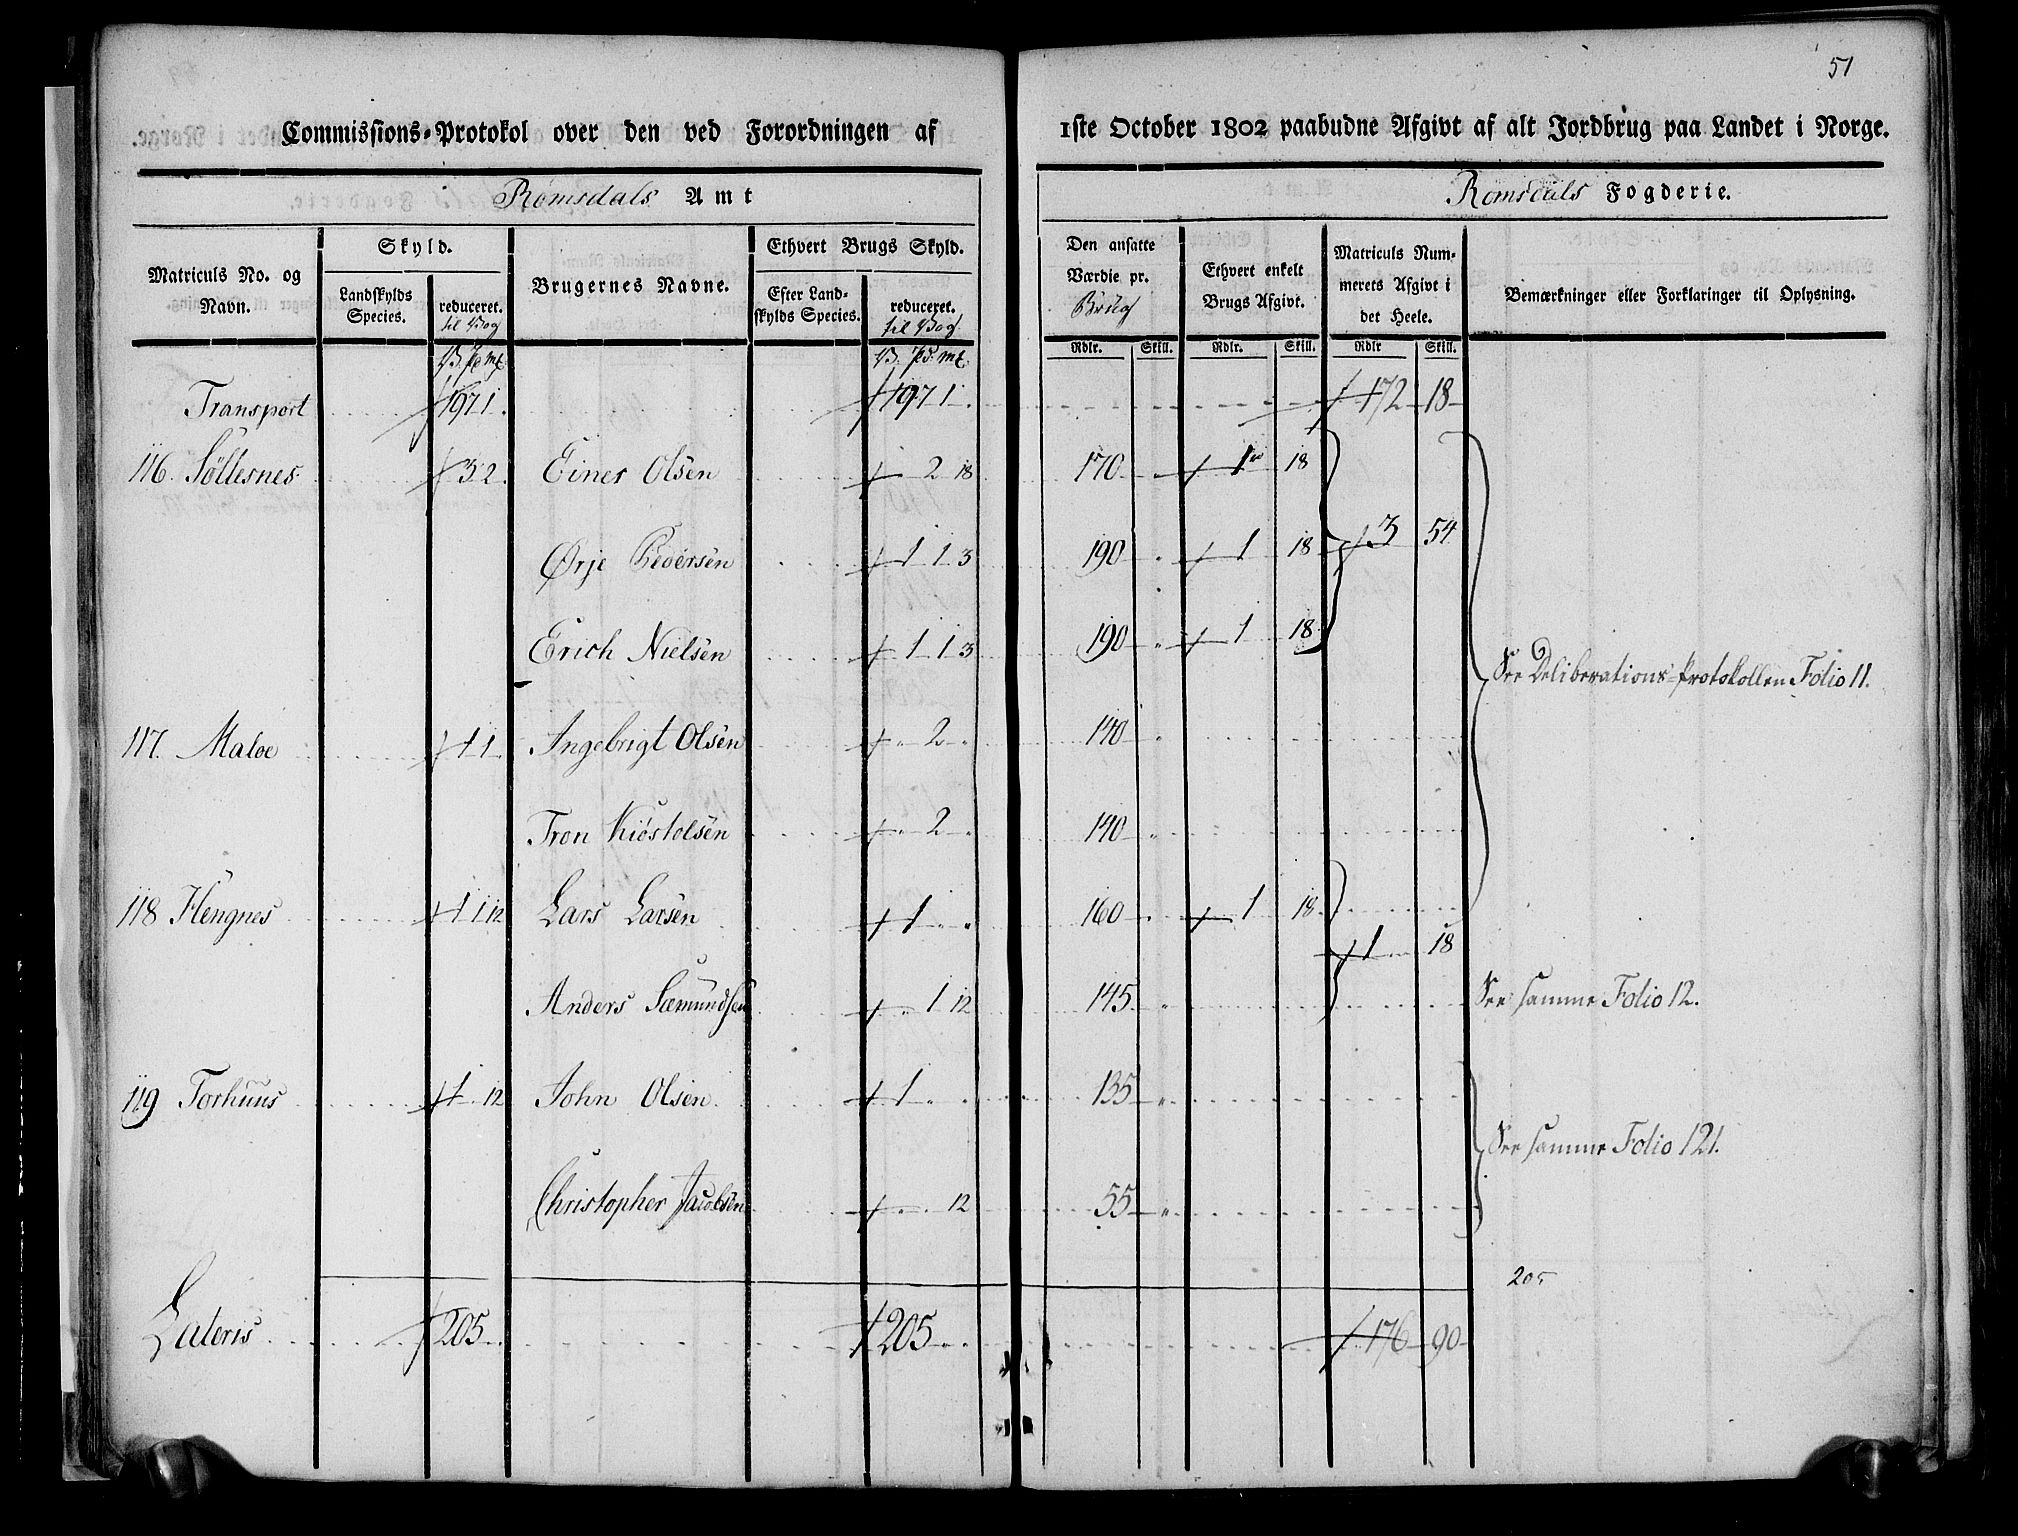 51
Commissions-Protokol over den ved Forordningen af 1ste October 1802 paabudne Afgivt af alt Jordbrug paa Landet i Norge.
Romsdals Amt
Romsdals Fogderie.
Matriculs No. og Navn.
Skyld.
Landskylds Species.
reduceret. til Vog
Brugernes Navne.
Ethvert Brugs Skyld.
Efter Landskylds Species.
reduceret. til Vog
Den ansatte Værdie pr. Brug
Ethvert enkelt Brugs Afgivt.
Matriculs Nummerets Afgivt i det Heele.
Bemærkninger eller Forklaringer til Oplysning.
V. pd. mk. V. pd. mk. Rdlr. Skill. Rdlr. Skill. Rdlr Skill.
Transport 197 1 197 1 172 18
116. Søltesnes 3 2 Einer Olsen 2 18 170 1 18
Ørje Pedersen 1 1 3 190 1 18 3 54
Erich Nielsen 1 1 3 190 1 18
See Deliberations-Protokollen Folio 11.
117. Maloe 1 1 Ingebrigt Olsen 2 140
Tron Kiøstolsen 2 140
118 Hengnes 1 1 12 Lars Larsen 1 160 1 18
1 18
Anders Sæmundsen 1 12 145 See samme Folio 12.
119 Torhuus 1 12 John Olsen 1 135
See samme Folio 121.
Christopher Jacobsen 12 55
205
Lateris 205 205 176 90